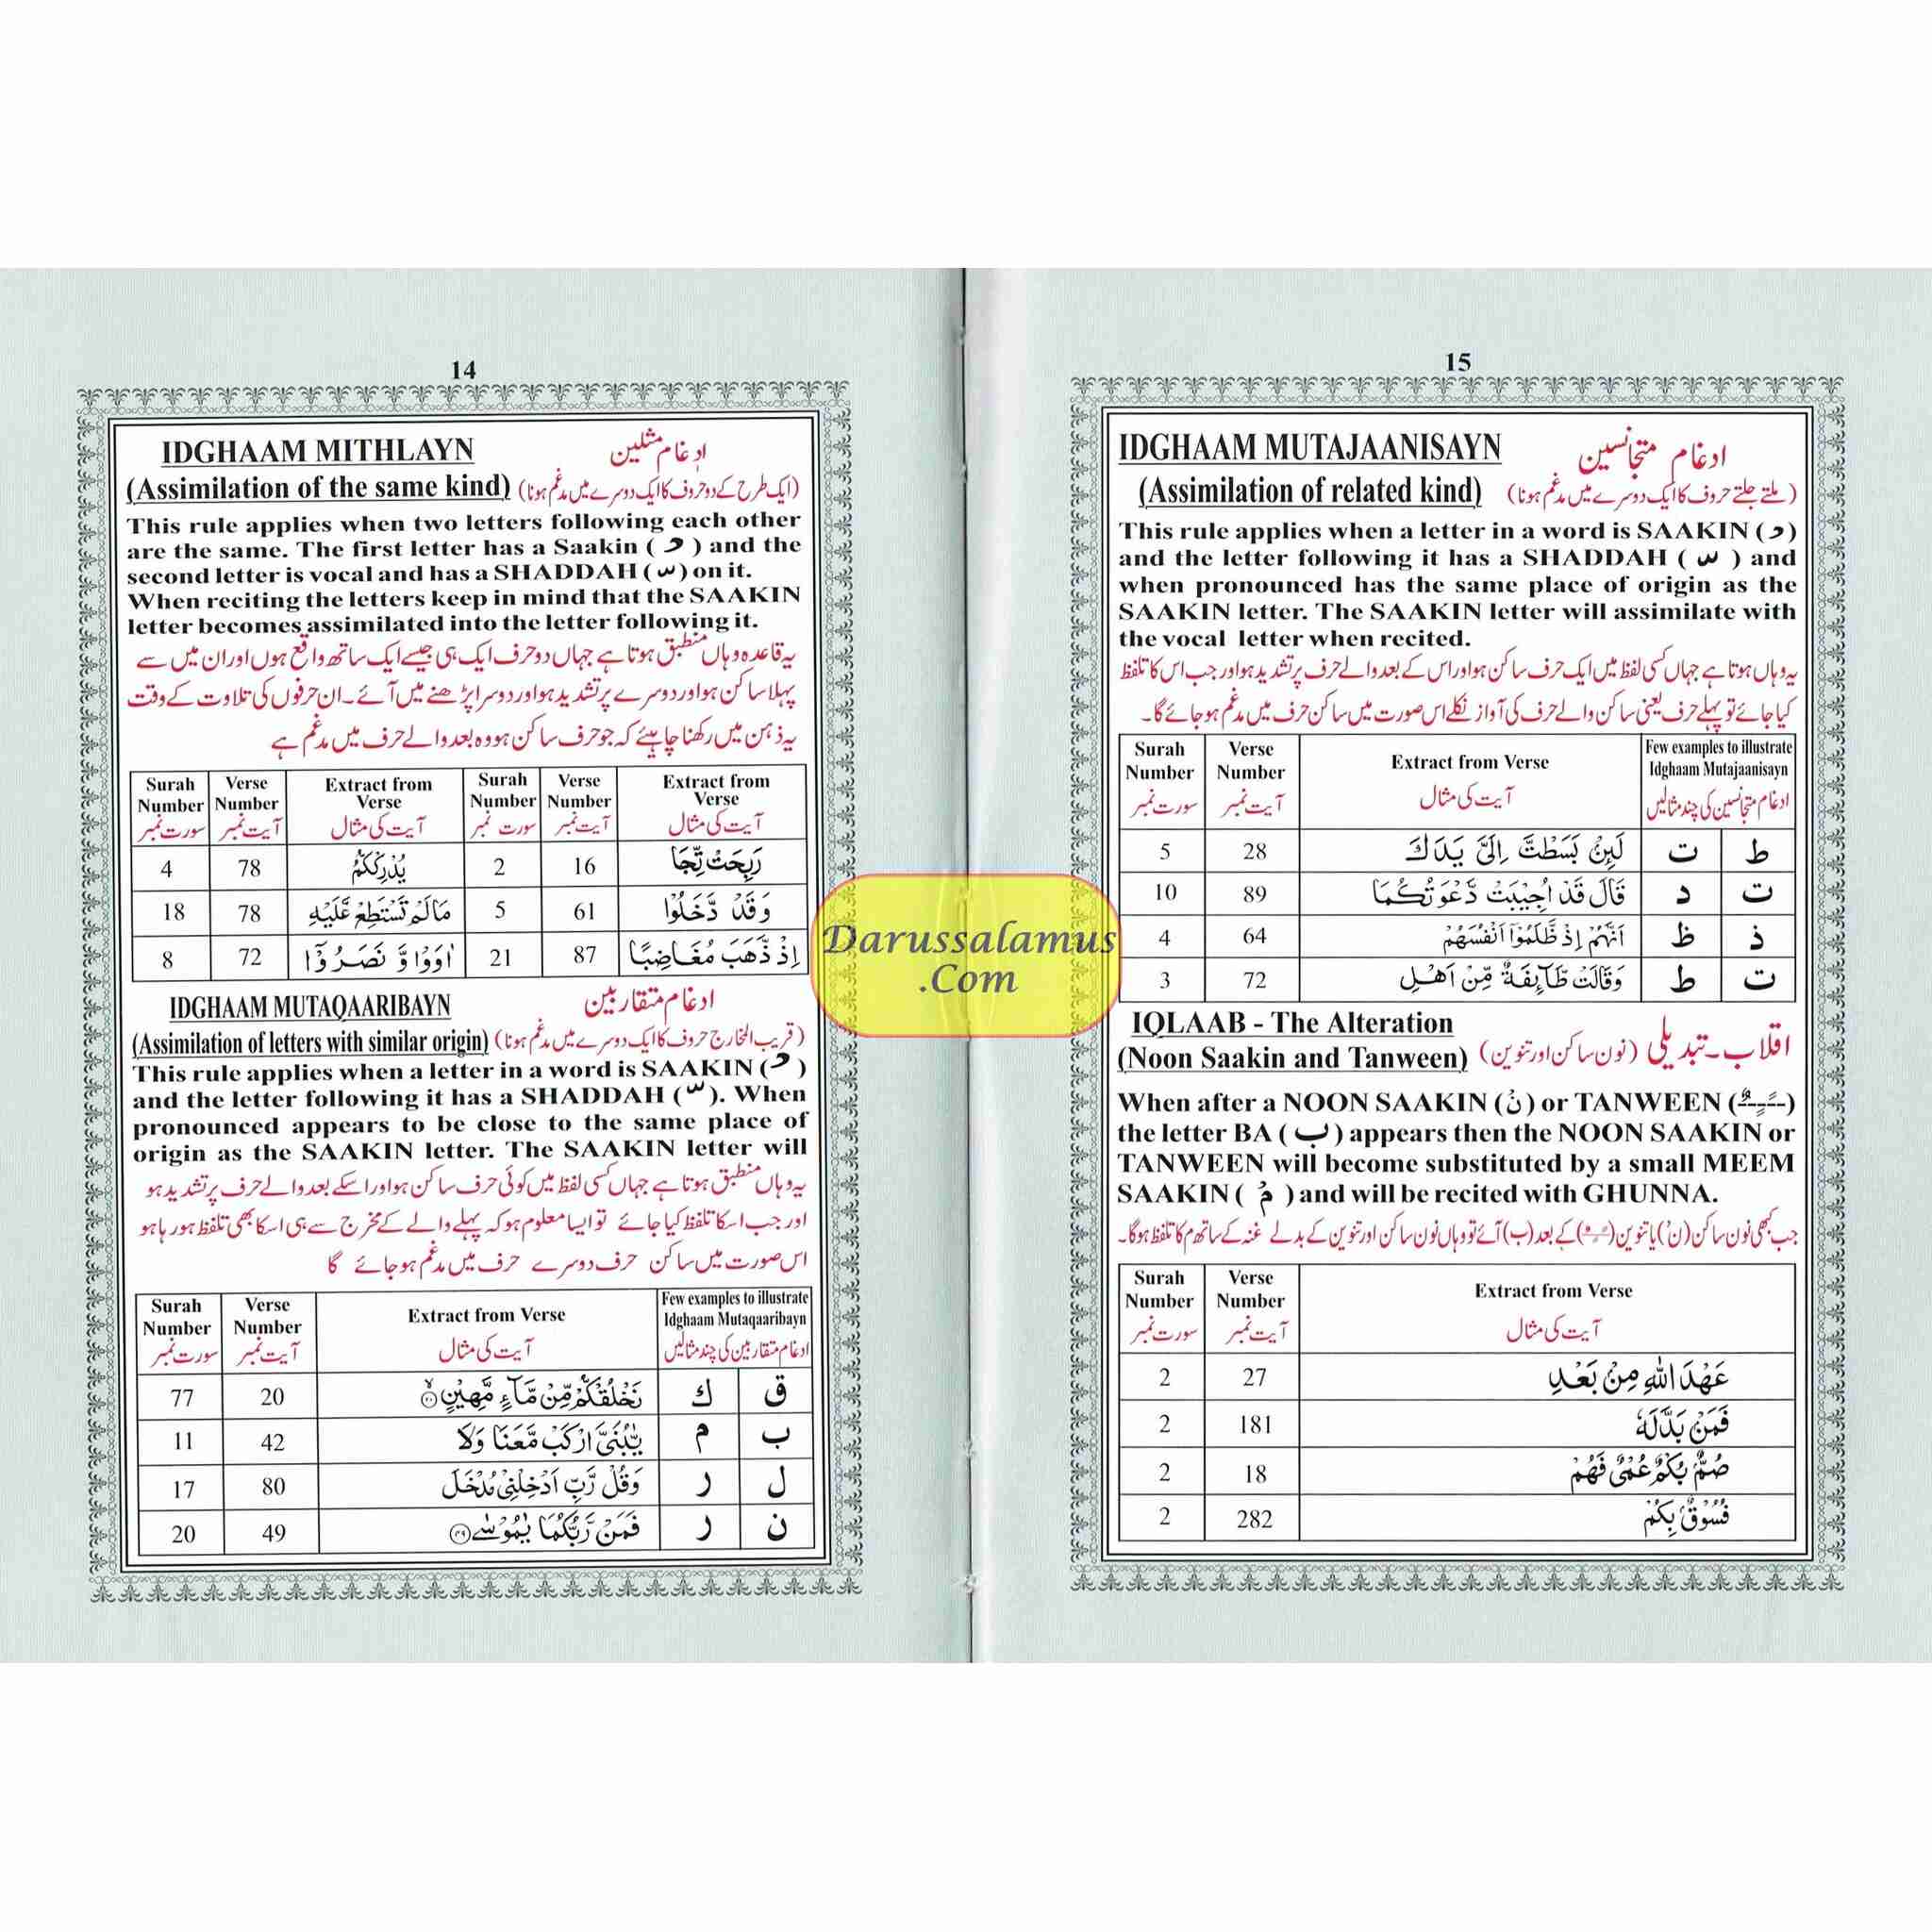 14
IDGHAAM MITHLAYN ادغام مثلین
(Assimilation of the same kind) (ایک طرح کے دو حروف کا ایک دوسرے میں مدغم ہونا)
This rule applies when two letters following each other
are the same. The first letter has a Saakin ( ) and the
second letter is vocal and has a SHADDAH ( ) on it.
When reciting the letters keep in mind that the SAAKIN
letter becomes assimilated into the letter following it.
یہ قاعدہ وہاں منطبق ہوتا ہے جہاں دو حرف ایک ہی جیسے ایک ساتھ واقع ہوں اور ان میں سے
پہلا ساکن ہو اور دوسرے پر تشدید ہو اور دوسرا پڑھنے میں آئے۔ ان حرفوں کی تلاوت کے وقت
یہ ذہن میں رکھنا چاہیئے کہ جو حرف ساکن ہو وہ بعد والے حرف میں مدغم ہے
Surah Verse Extract from Surah Verse Extract from
Number Number Verse Number Number Verse
سورت نمبر آیت نمبر آیت کی مثال سورت نمبر آیت نمبر آیت کی مثال
4 78 يُدْرِكْكُّمُ 2 16 رَبِحَتْ تِّجَا
18 78 مَا لَمْ تَسْتَطِعْ عَّلَيْهِ 5 61 وَقَدْ دَّخَلُوْا
8 72 اٰوَوْا وَّ نَصَرُوْٓا 21 87 اِذْ ذَّهَبَ مُغَاضِبًا
IDGHAAM MUTAQAARIBAYN ادغام متقاربین
(Assimilation of letters with similar origin) (قریب المخارج حروف کا ایک دوسرے میں مدغم ہونا)
This rule applies when a letter in a word is SAAKIN ( )
and the letter following it has a SHADDAH ( ). When
pronounced appears to be close to the same place of
origin as the SAAKIN letter. The SAAKIN letter will
یہ وہاں منطبق ہوتا ہے جہاں کسی لفظ میں کوئی حرف ساکن ہو اور اسکے بعد والے حرف پر تشدید ہو
اور جب اسکا تلفظ کیا جائے تو ایسا معلوم ہو کہ پہلے والے کے مخرج سے ہی اسکا بھی تلفظ ہو رہا ہو
اس صورت میں ساکن حرف دوسرے حرف میں مدغم ہو جائے گا
Surah Verse Extract from Verse Few examples to illustrate
Number Number Idghaam Mutaqaaribayn
سورت نمبر آیت نمبر آیت کی مثال ادغام متقاربین کی چند مثالیں
77 20 نَخْلُقْكُّمْ مِّنْ مَّآءٍ مَّهِيْنٍ ك ق
11 42 يّٰبُنَيَّ ارْكَبْ مَّعَنَا وَلَا م ب
17 80 وَقُلْ رَّبِّ اَدْخِلْنِيْ مُدْخَلَ ر ل
20 49 فَمَنْ رَّبُّكُمَا يٰمُوْسٰى ر ن
Darussalamus
.Com
15
IDGHAAM MUTAJAANISAYN ادغام متجانسین
(Assimilation of related kind) (ملتے جلتے حروف کا ایک دوسرے میں مدغم ہونا)
This rule applies when a letter in a word is SAAKIN ( )
and the letter following it has a SHADDAH ( ) and
when pronounced has the same place of origin as the
SAAKIN letter. The SAAKIN letter will assimilate with
the vocal letter when recited.
یہ وہاں ہوتا ہے جہاں کسی لفظ میں ایک حرف ساکن ہو اور اس کے بعد والے حرف پر تشدید ہو اور جب اس کا تلفظ
کیا جائے تو پہلے حرف یعنی ساکن والے حرف کی آواز نکلے اس صورت میں ساکن حرف میں مدغم ہو جائے گا۔
Surah Verse Extract from Verse Few examples to illustrate
Number Number Idghaam Mutajaanisayn
سورت نمبر آیت نمبر آیت کی مثال ادغام متجانسین کی چند مثالیں
5 28 لَئِنْۢ بَسَطْتَّ اِلَيَّ يَدَكَ ت ط
10 89 قَالَ قَدْ اُجِيْبَتْ دَّعْوَتُكُمَا د ت
4 64 اَنَّهُمْ اِذْ ظَّلَمُوْٓا اَنْفُسَهُمْ ظ ذ
3 72 وَقَالَتْ طَّآئِفَةٌ مِّنْ اَهْلِ ط ت
IQLAAB - The Alteration اقلاب۔ تبدیلی
(Noon Saakin and Tanween) (نون ساکن اور تنوین)
When after a NOON SAAKIN (نْ) or TANWEEN ( )
the letter BA ( ب ) appears then the NOON SAAKIN or
TANWEEN will become substituted by a small MEEM
SAAKIN ( مْ ) and will be recited with GHUNNA.
جب کبھی نون ساکن (نْ) یا تنوین ( ) کے بعد (ب) آئے تو وہاں نون ساکن اور تنوین کے بدلے غنہ کے ساتھ م کا تلفظ ہوگا۔
Surah Verse Extract from Verse
Number Number
سورت نمبر آیت نمبر آیت کی مثال
2 27 عَهْدَ اللّٰهِ مِنْۢ بَعْدِ
2 181 فَمَنْۢ بَدَّلَهٗ
2 18 صُمٌّۢ بُكْمٌ عُمْيٌ فَهُمْ
2 282 فُسُوْقٌۢ بِكُمْ